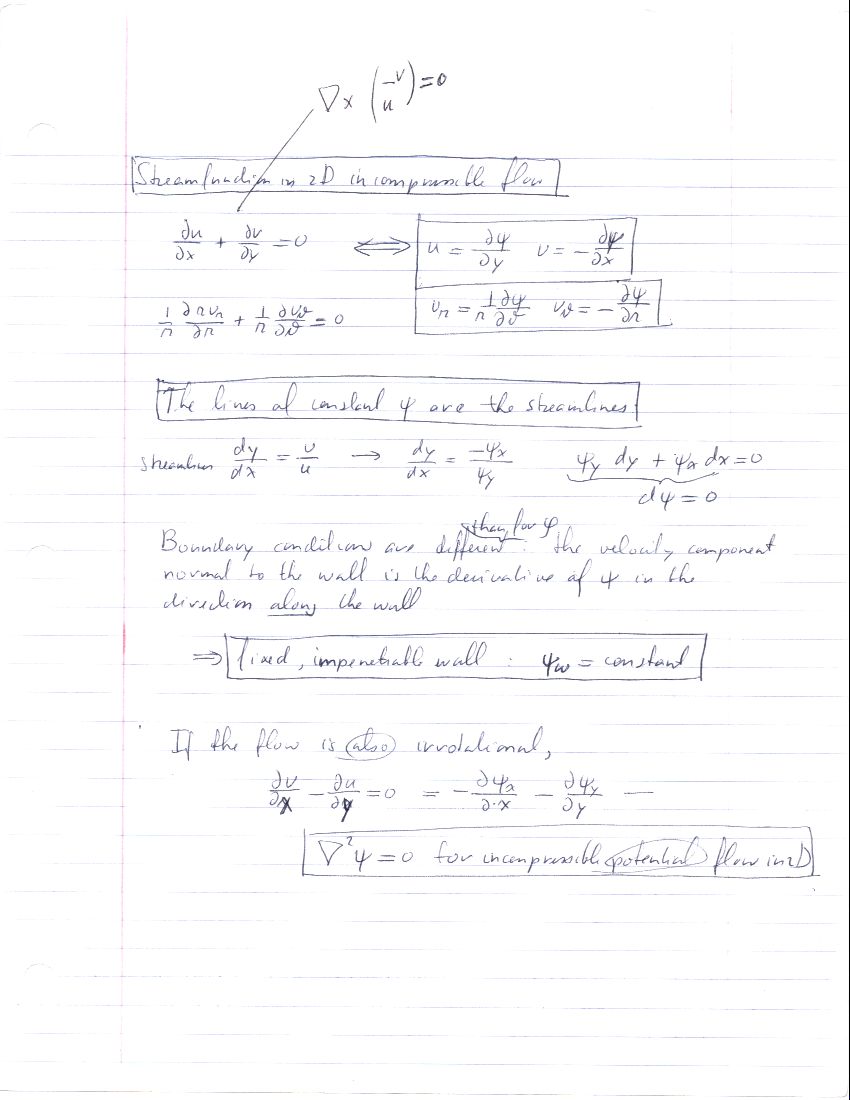 ∇× (-v u) = 0
Streamfunction in 2D incompressible flow
∂u/∂x + ∂v/∂y = 0 ⟺ u = ∂ψ/∂y v = -∂ψ/∂x
1/r ∂rv_r/∂r + 1/r ∂v_ϑ/∂ϑ = 0 v_r = 1/r ∂ψ/∂ϑ v_ϑ = -∂ψ/∂r
The lines of constant ψ are the streamlines
streamlines dy/dx = v/u → dy/dx = -ψ_x/ψ_y ψ_y dy + ψ_x dx = 0
dψ = 0
than for φ
Boundary conditions are different: the velocity component
normal to the wall is the derivative of ψ in the
direction along the wall
⇒ fixed, impenetrable wall: ψ_w = constant
If the flow is also irrotational,
∂v/∂x - ∂u/∂y = 0 = -∂ψ_x/∂x - ∂ψ_y/∂y —
∇²ψ = 0 for incompressible potential flow in 2D